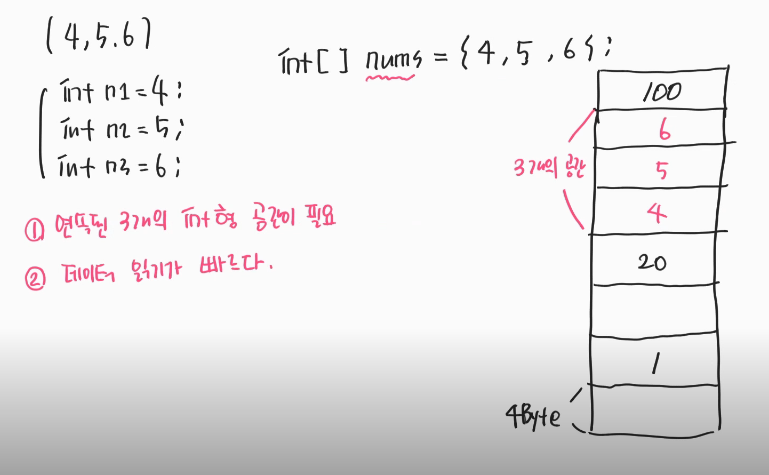 (4,5.6)
int n1=4;
int n2=5;
int n3=6;
① 연속된 3개의 int형 공간이 필요
② 데이터 읽기가 빠르다.
int[] nums = {4,5,6};
100
6
5
4
3개의 공간
20
1
4Byte